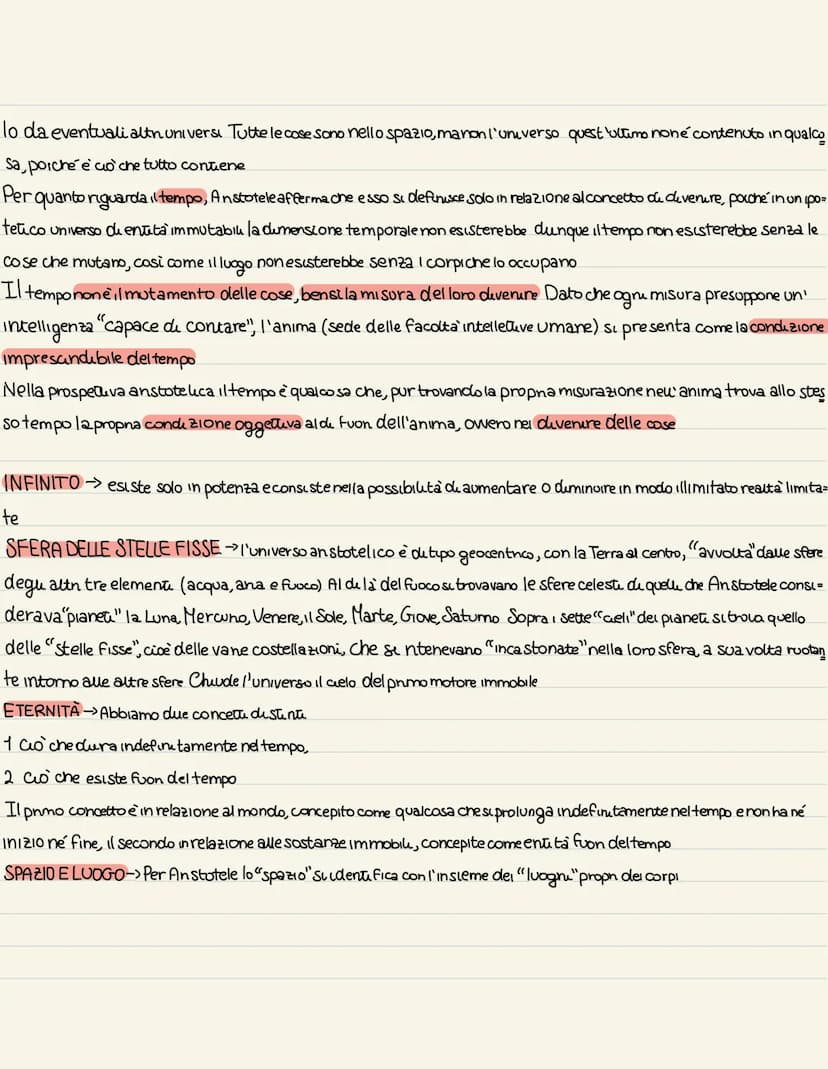 lo da eventuali altri universi Tutte le cose sono nello spazio, ma non l'universo quest'ultimo non é contenuto in qualco
sa, poiché è ciò che tutto contiene
Per quanto riguarda il tempo, Aristotele afferma che esso si definisce solo in relazione al concetto di divenire, poiché in un ipo=
tetico universo di entità immutabili la dimensione temporale non esisterebbe dunque il tempo non esisterebbe senza le
cose che mutano, così come il luogo non esisterebbe senza i corpi che lo occupano
Il tempo non è il mutamento delle cose, bensì la misura del loro divenire Dato che ogni misura presuppone un'
intelligenza "capace di contare", l'anima (sede delle facoltà intellettive umane) si presenta come la condizione
imprescindibile del tempo
Nella prospettiva aristotelica il tempo è qualcosa che, pur trovando la propria misurazione nell'anima trova allo stes
so tempo la propria condizione oggettiva al di fuori dell'anima, ovvero nel divenire delle cose
INFINITO → esiste solo in potenza e consiste nella possibilità di aumentare o diminuire in modo illimitato realtà limita=
te
SFERA DELLE STELLE FISSE → l'universo aristotelico è di tipo geocentrico, con la Terra al centro, "avvolta" dalle sfere
degli altri tre elementi (acqua, aria e fuoco) Al di là del fuoco si trovavano le sfere celesti di quelli che Aristotele consi=
derava "pianeti" la Luna, Mercurio, Venere, il Sole, Marte, Giove, Saturno Sopra i sette "cieli" dei pianeti si trova quello
delle "stelle fisse", cioè delle varie costellazioni, che si ritenevano "incastonate" nella loro sfera, a sua volta ruotan
te intorno alle altre sfere Chiude l'universo il cielo del primo motore immobile
ETERNITÀ → Abbiamo due concetti distinti
1 Ciò che dura indefinitamente nel tempo,
2 Ciò che esiste fuori del tempo
Il primo concetto è in relazione al mondo, concepito come qualcosa che si prolunga indefinitamente nel tempo e non ha né
inizio né fine, il secondo in relazione alle sostanze immobili, concepite come entità fuori del tempo
SPAZIO E LUOGO → Per Aristotele lo "spazio" si identifica con l'insieme dei "luoghi" propri dei corpi